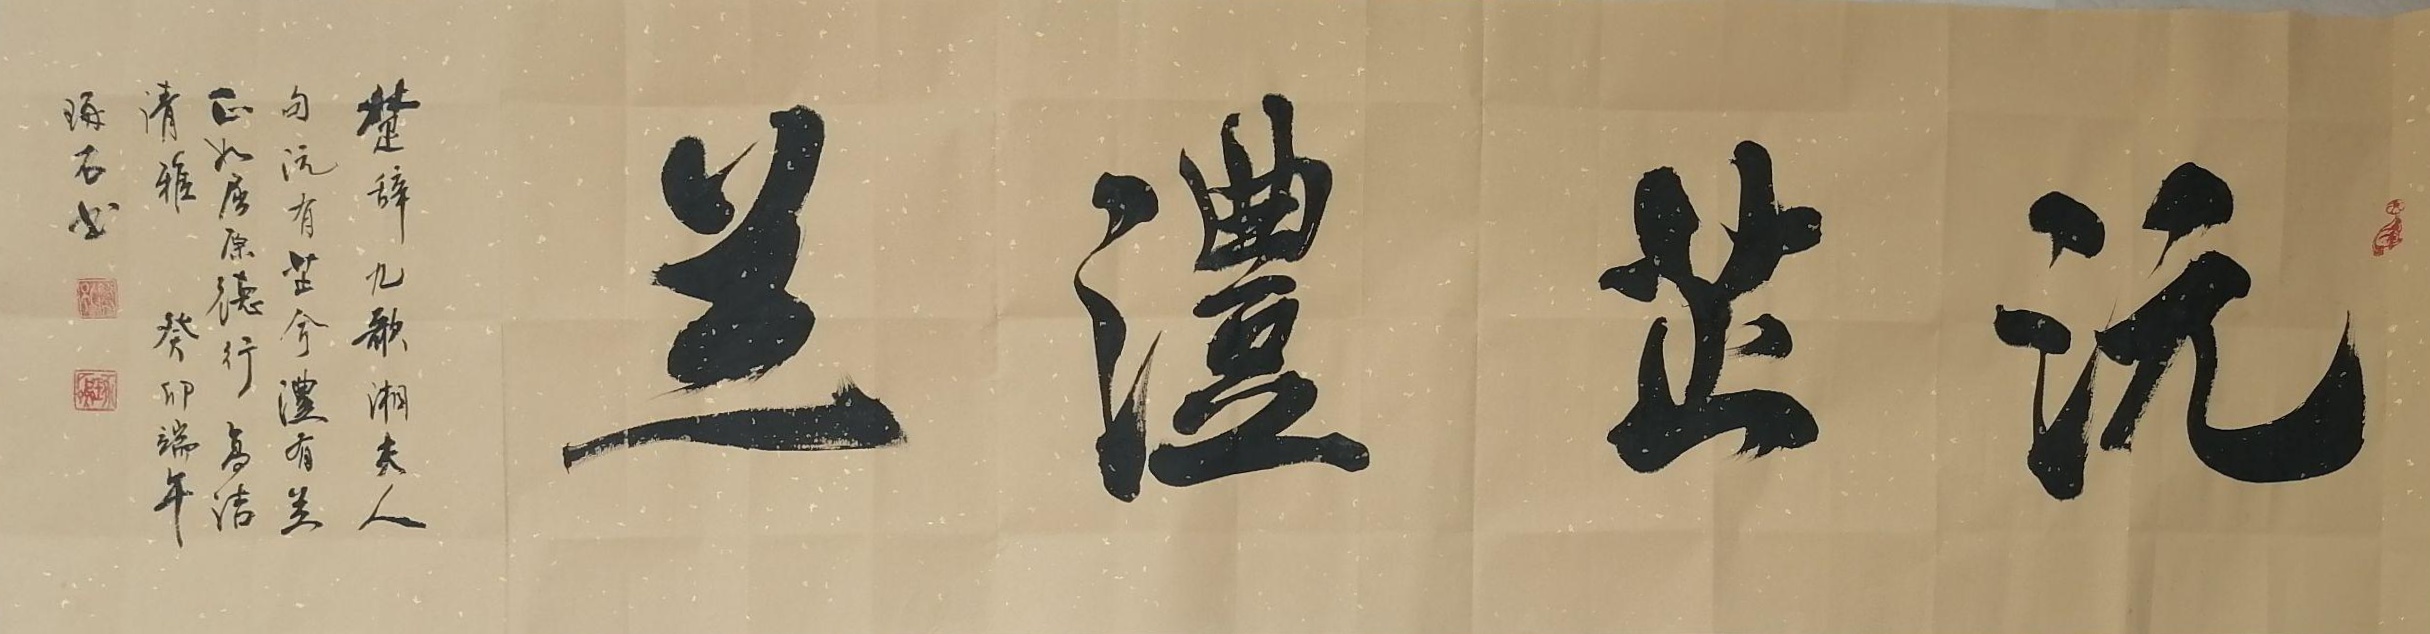 沅芷澧兰
楚辞九歌湘夫人
句沅有芷兮澧有兰
正如屈原德行高洁
清雅 癸卯端午
石书